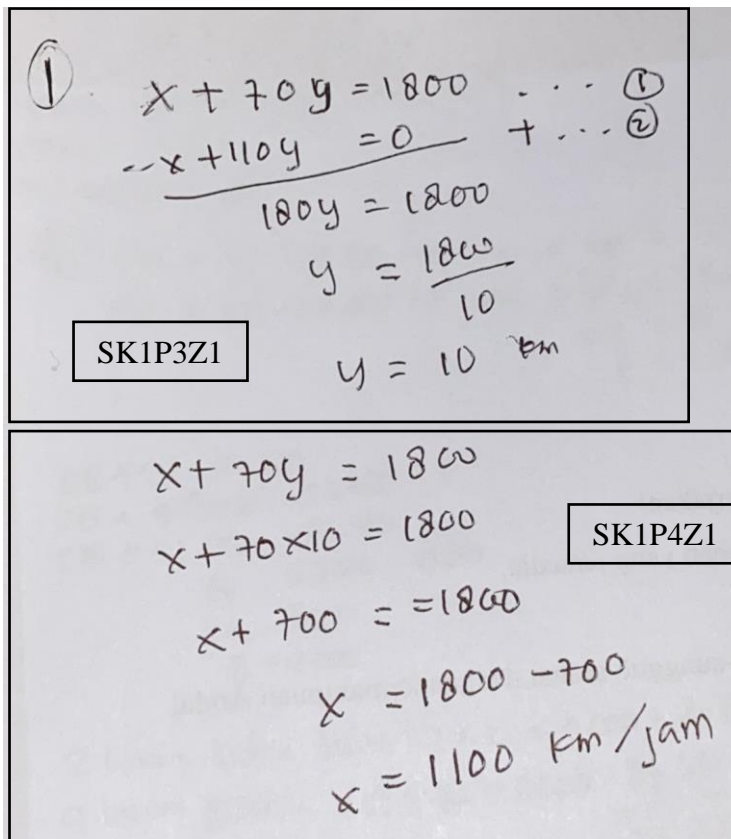 ①. x + 70y = 1800 ... ①
-x + 110y = 0 + ... ②
180y = 1800
y = 1800/10
y = 10 km
SK1P3Z1
x + 70y = 1800
x + 70 × 10 = 1800
SK1P4Z1
x + 700 = = 1800
x = 1800 - 700
x = 1100 km/jam